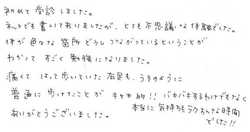 初めて受診しました。
みんなも書いて有りましたが、とても不思議な体験でした。
体が色々な箇所どうしつながっているということが
わかって すごく勉強になりました。
痛くて ほって歩いていた 右足も、うそのように
普通に 歩けたことが 今も感動!! バキバキされるわけでもなく
本当に 気持ちもラクちんな時間
でした!!
ありがとうございました。